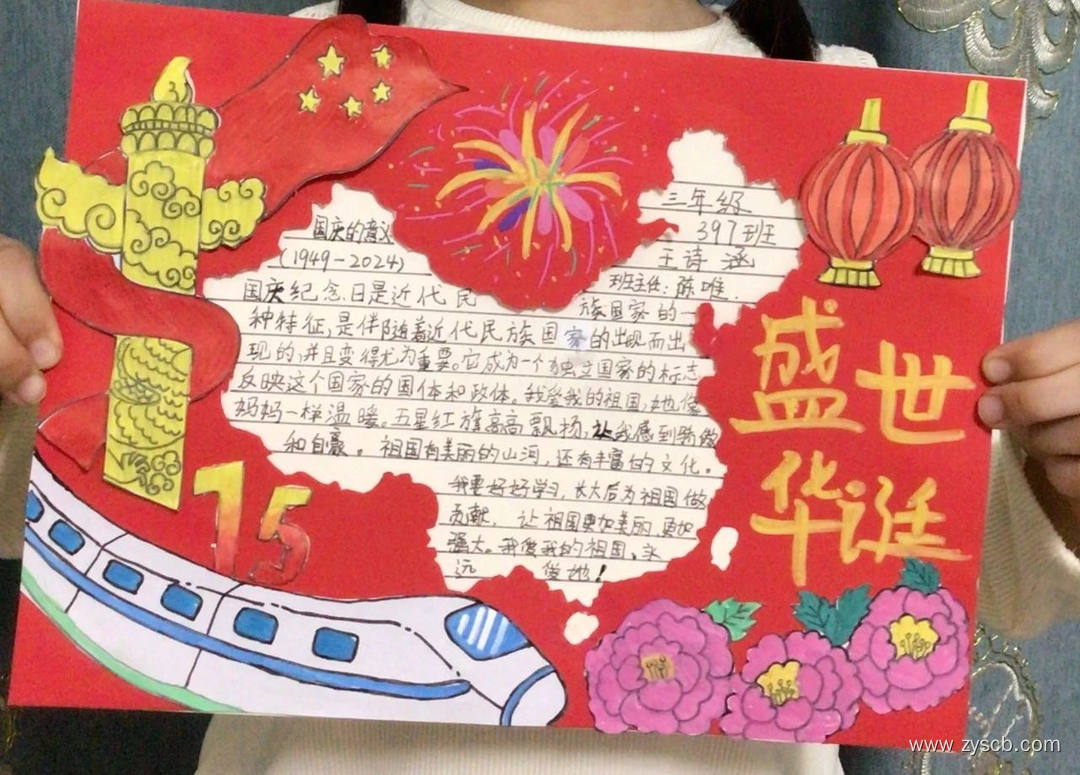 国庆的意义
(1949-2024)
三年级
397班
王诗涵
班主任:陈唯.
国庆纪念日是近代民族国家的一
种特征,是伴随着近代民族国家的出现而出
现的,并且变得尤为重要。它成为一个独立国家的标志
反映这个国家的国体和政体。我爱我的祖国,她像
妈妈一样温暖。五星红旗高高飘扬,让我感到骄傲
和自豪。祖国有美丽的山河,还有丰富的文化。
我要好好学习,长大后为祖国做
贡献,让祖国更加美丽更加
强大。我爱我的祖国,永
远爱她!
盛世
华诞
75
www.zyscb.com